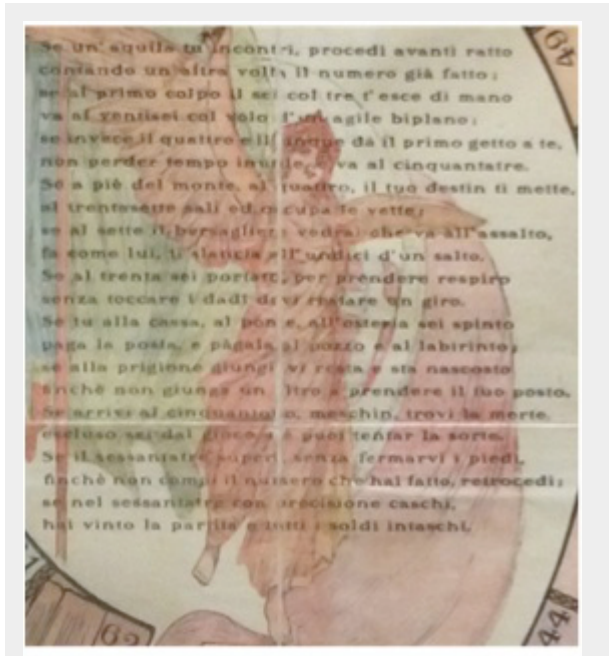 Se un'aquila tu incontri, procedi avanti ratto
contando un'altra volta il numero già fatto;
se al primo colpo il sei col tre t'esce di mano
va al ventisei col volo d'un agile biplano;
se invece il quattro e il cinque dà il primo getto a te,
non perder tempo inutile, e va al cinquantatre.
Se a piè del monte, al quattro, il tuo destin ti mette,
al trentasette sali ed occupa le vette;
se al sette il bersagliere vedrai che va all'assalto,
fa come lui, ti slancia all'undici d'un salto.
Se al trenta sei portato, per prendere respiro
senza toccare i dadi devi restare un giro.
Se tu alla cassa, al ponte, all'osteria sei spinto
paga la posta, e pàgala al pozzo e al labirinto;
se alla prigione giungi vi resta e sta nascosto
finchè non giunga un altro a prendere il tuo posto.
Se arrivi al cinquantotto, meschin, trovi la morte
escluso sei dal gioco nè puoi tentar la sorte.
Se il sessantatre superi senza fermarvi i piedi,
finchè non compi il numero che hai fatto, retrocedi;
se nel sessantatre con precisione caschi,
hai vinto la partita e tutti i soldi intaschi.
49
62
44